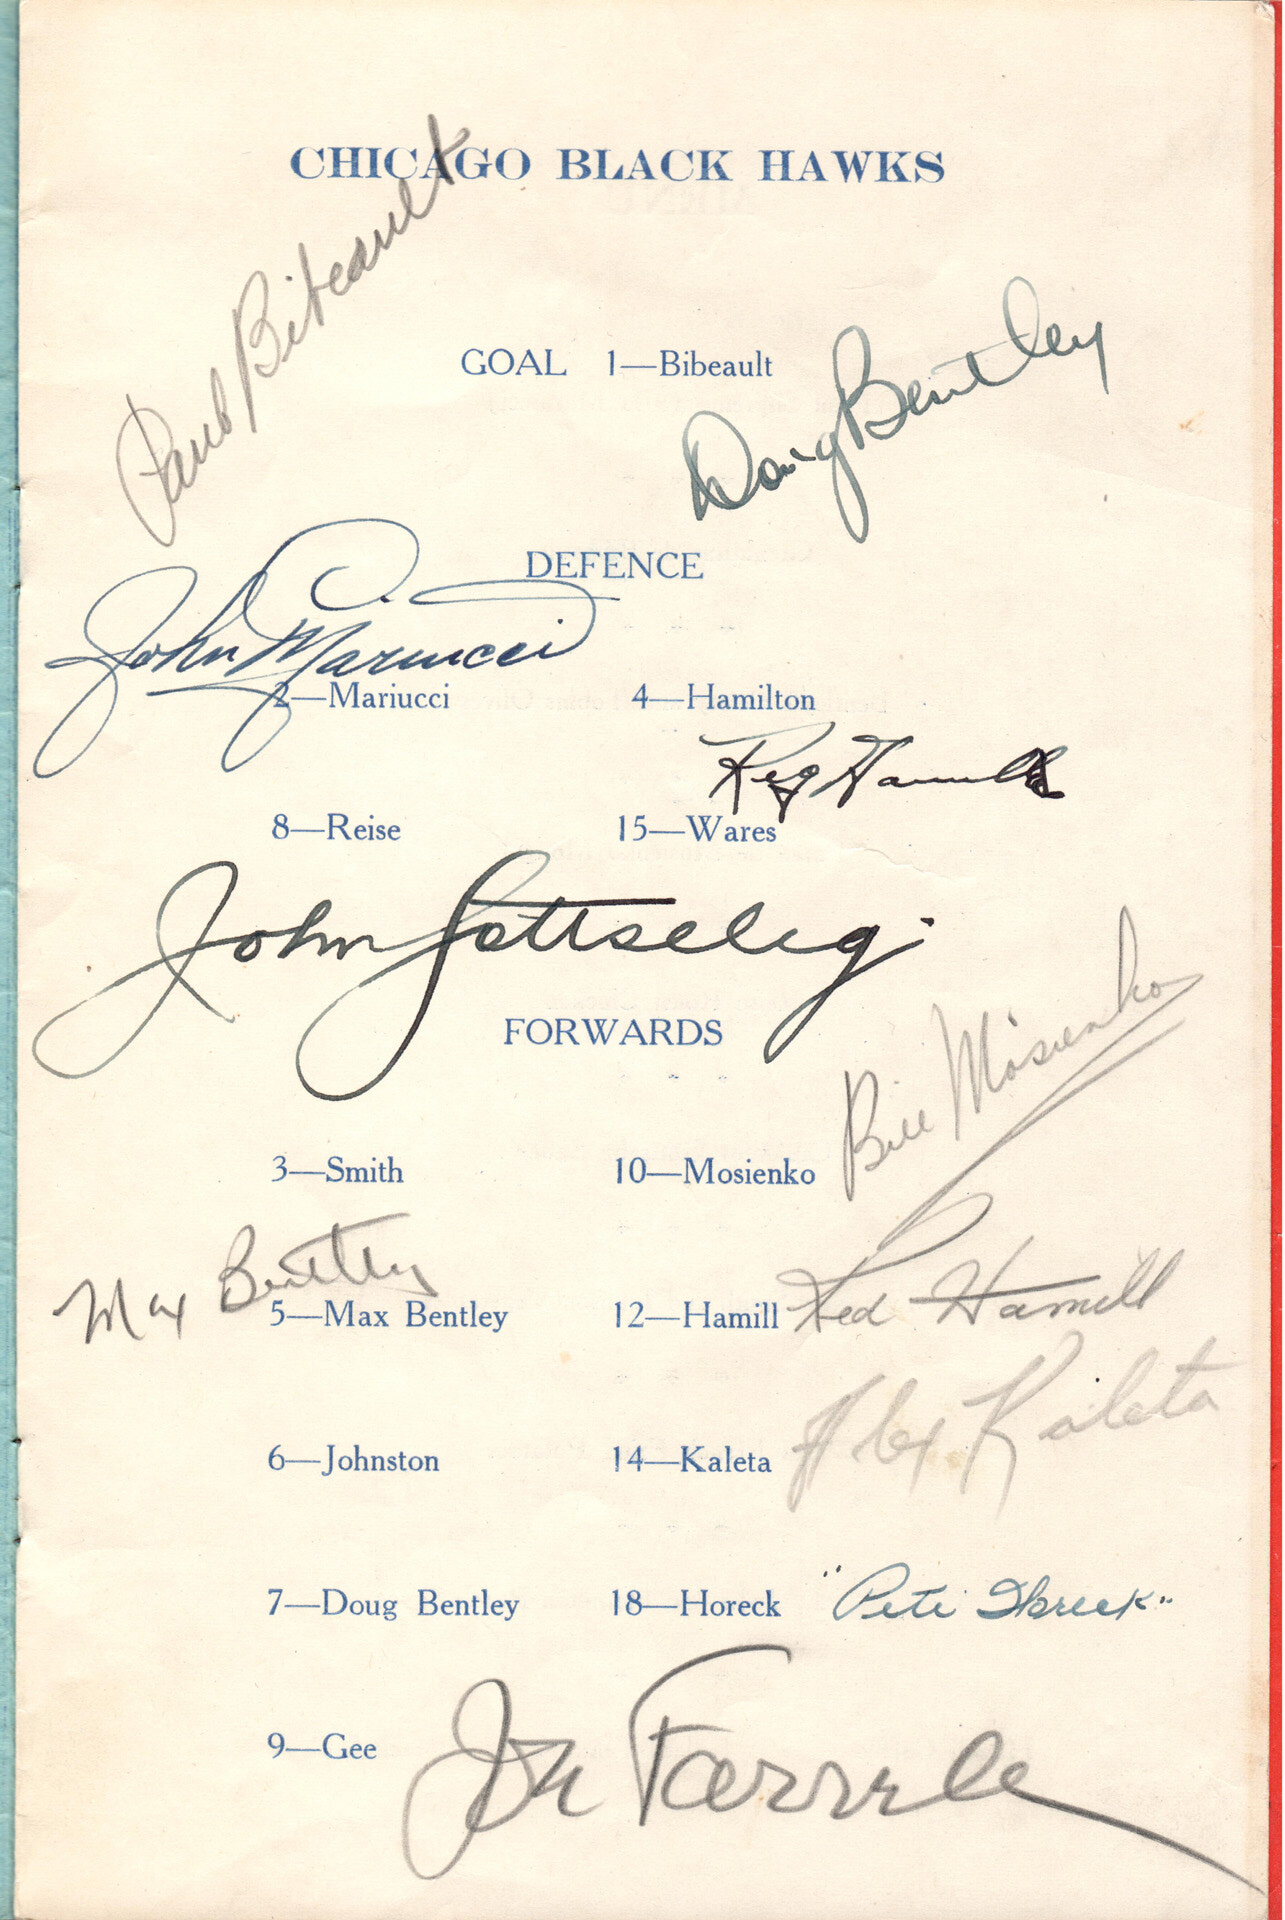 CHICAGO BLACK HAWKS
Paul Bibeault
GOAL 1—Bibeault
Doug Bentley
DEFENCE
John Mariucci
2—Mariucci 4—Hamilton
Reg Hamilton
8—Reise 15—Wares
John Gottselig
FORWARDS
Bill Mosienko
3—Smith 10—Mosienko
Max Bentley
5—Max Bentley 12—Hamill Red Hamill
Alex Kaleta
6—Johnston 14—Kaleta
7—Doug Bentley 18—Horeck "Pete Horeck"
9—Gee
Joe Farrell